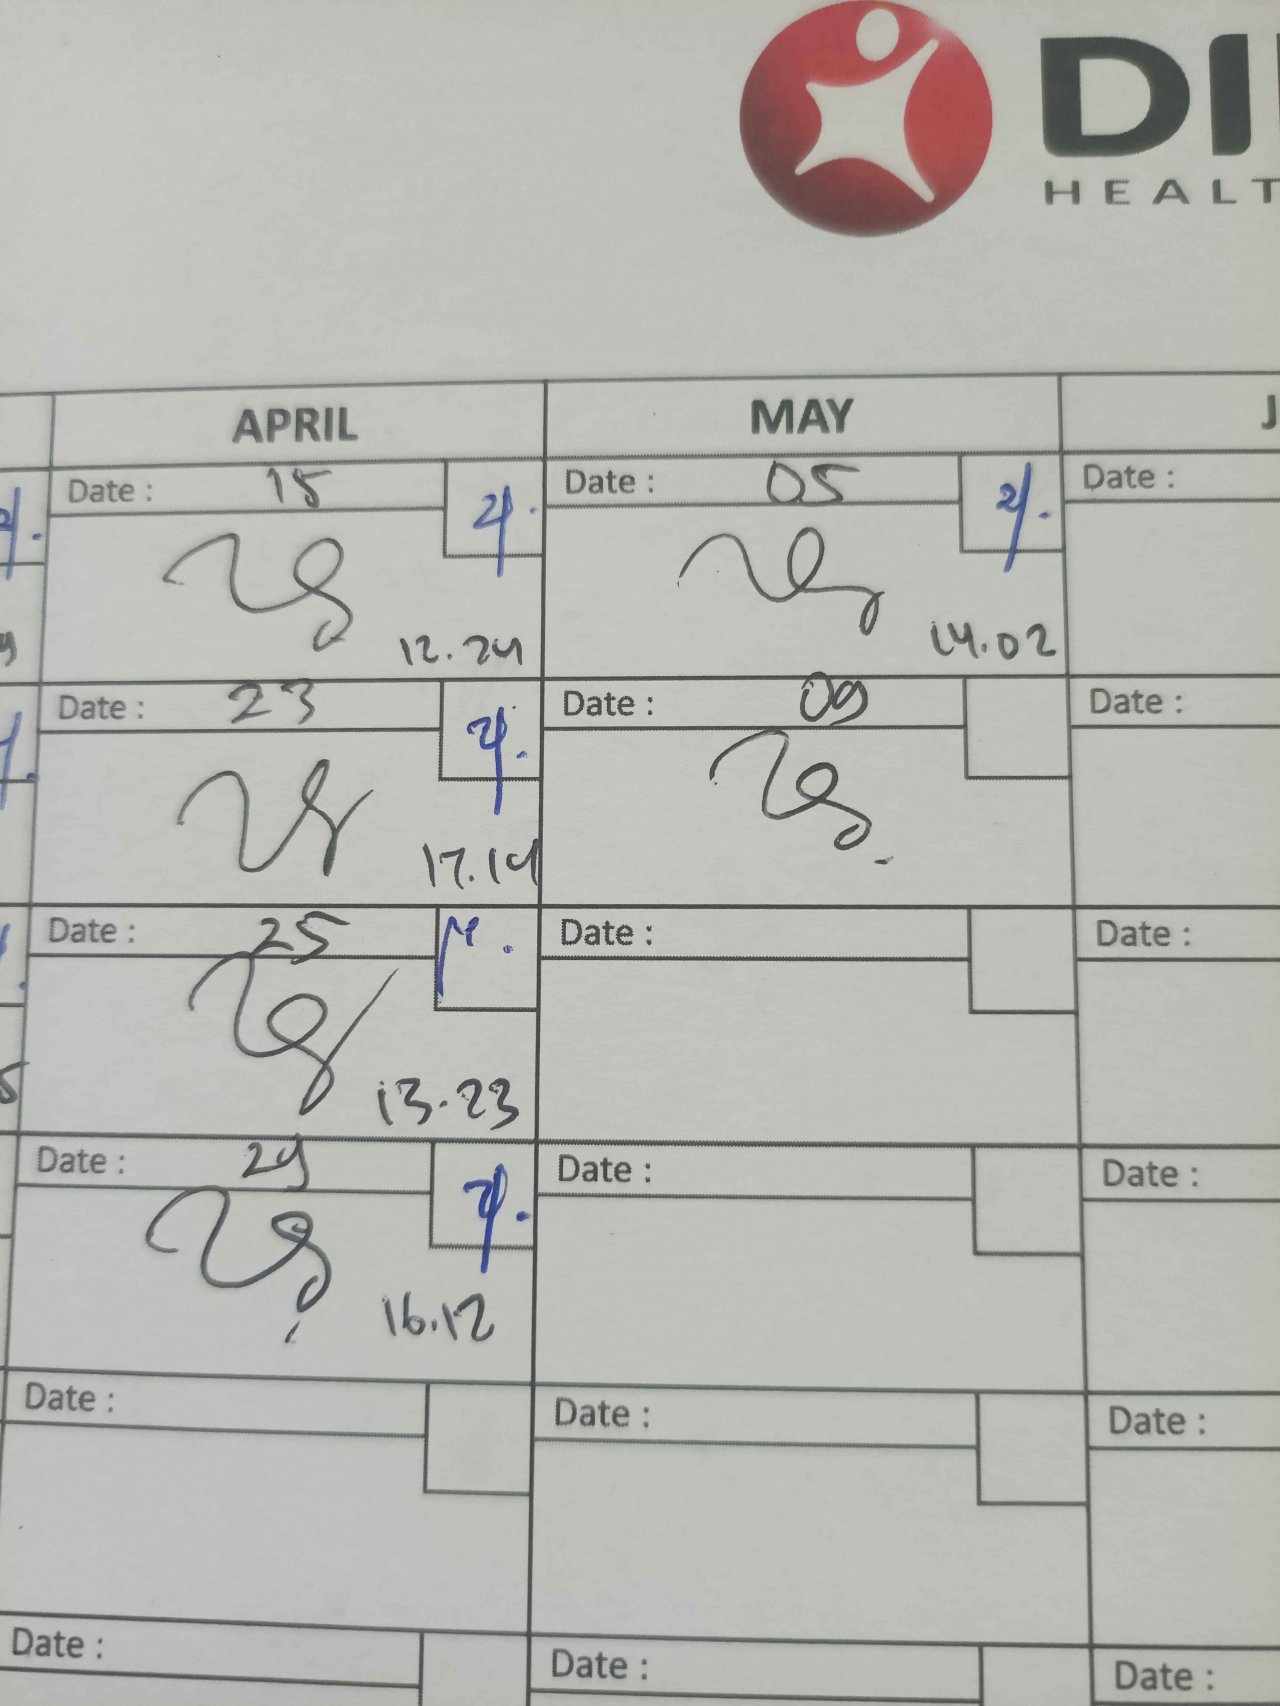 DI
HEALT
APRIL
MAY
J
Date : 15
Date : 05
Date :
12.24
14.02
Date : 23
Date : 09
Date :
17.14
Date : 25
Date :
Date :
13.23
Date : 29
Date :
Date :
16.12
Date :
Date :
Date :
Date :
Date :
Date :